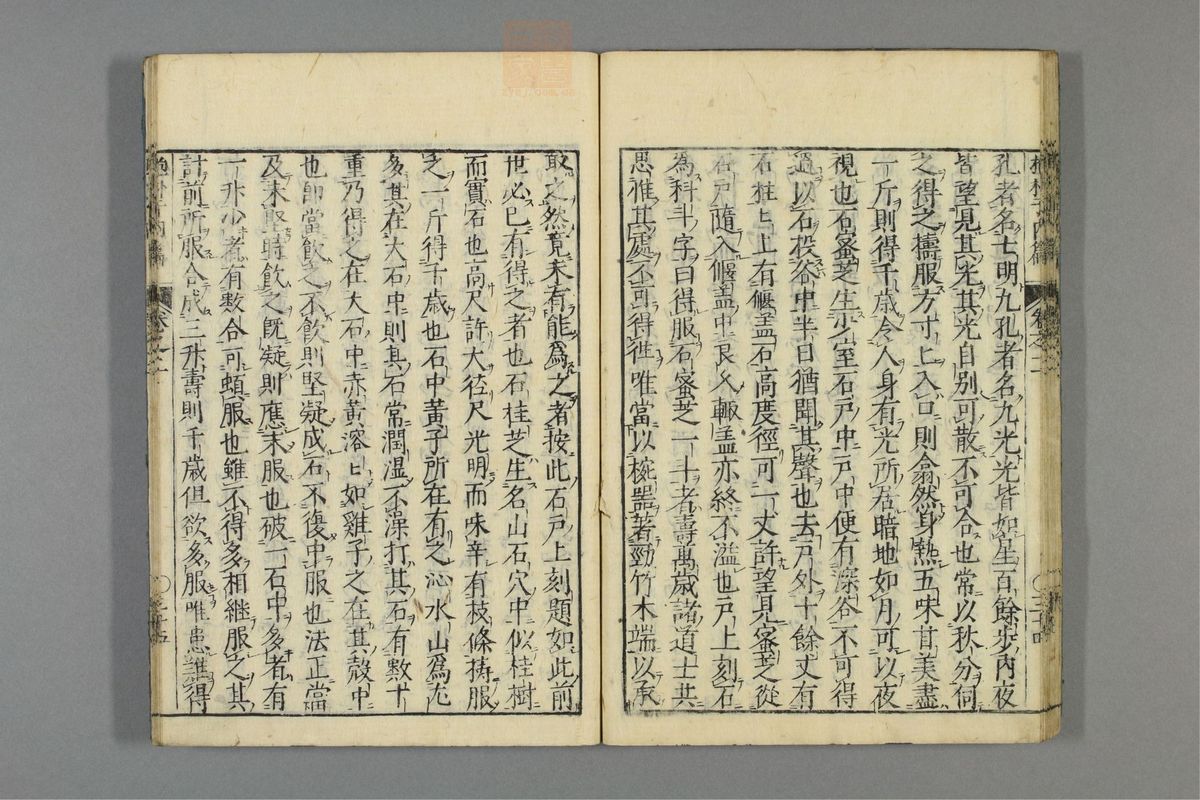 孔者名士明九孔者名九光光皆如星百餘步內夜
皆望見其光其光自別可散不可合也常以秋分伺
之得之擣服方寸匕入口則翕然身熱五味甘美盡
一斤則得千歲令人身有光所居暗地如月可以夜
視也石蜜芝生少室石戶中戶中便有深谷不可得
過以石投谷中半日猶聞其聲也去戶外十餘丈有
石柱柱上有偃盖石高度徑可一丈許望見蜜芝從
石戶隨入偃盖中良久輙盖亦終不溢也戶上刻石
為科斗字曰得服石蜜芝一斗者壽萬歲諸道士共
思惟其處不可得徃唯當以椀噐著勁竹木端以承
取之然竟未有能爲之者按此石戶上刻題如此前
世必已有得之者也石桂芝生名山石穴中似桂樹
而實石也高尺許大徑尺光明而味辛有枝條擣服
之一斤得千歲也石中黃子所在有之沁水山爲尤
多其在大石中則其石常潤湿不燥打其石有數十
重乃得之在大石中赤黃溶匕如雞子之在其殼中
也即當飲之不飲則堅凝成石不復中服也法正當
及未堅時飲之旣凝則應末服也破一石中多者有
一升少者有數合可頓服也雖不得多相継服之其
計前所服合成三升壽則千歲但欲多服唯患難得